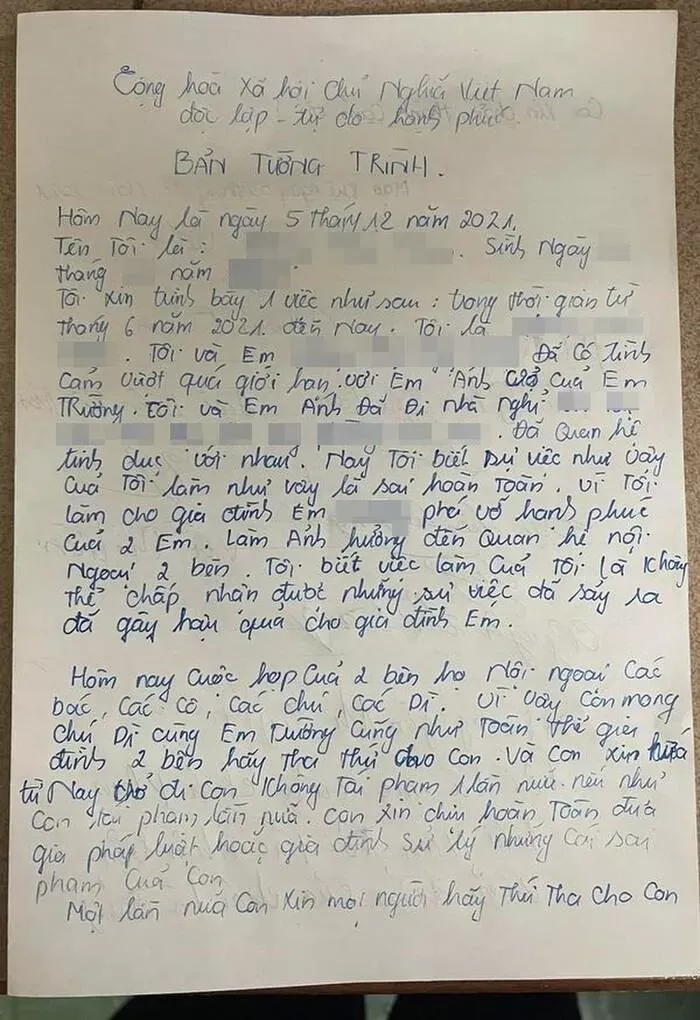 Cộng hoà Xã hội Chủ Nghĩa Việt Nam
độc lập - tự do - hạnh phúc
BẢN TƯỜNG TRÌNH.
Hôm Nay là ngày 5 tháng 12 năm 2021.
Tên Tôi là : Sinh Ngày
tháng năm
Tôi xin trình bày 1 việc như sau : trong thời gian từ
tháng 6 năm 2021. đến Nay. Tôi là
. Tôi và Em Đã Có tình
Cảm vượt quá giới hạn với Em Ánh của Em
TRường. Tôi và Em Ánh Đã Đi nhà nghỉ
. Đã Quan hệ
tình dục với nhau. Nay Tôi biết sự việc như vậy
Của Tôi làm như vậy là sai hoàn toàn. vì Tôi
làm cho gia đình Em phá vỡ hạnh phúc
Của 2 Em. Làm Ảnh hưởng đến Quan hệ nội
Ngoại 2 bên. Tôi biết việc làm Của Tôi là Không
thể chấp nhận được nhưng sự việc đã sảy ra
đã gây hậu quả cho gia đình Em.
Hôm nay Cuộc họp Của 2 bên họ Nội ngoại Các
bác, Các Cô, Các chú, Các Dì. Vì vậy Con mong
chú Dì cùng Em TRường Cũng như Toàn thể gia
đình 2 bên hãy Tha thứ cho Con. Và Con xin hứa
từ Nay trở đi Con Không Tái phạm 1 lần nữa. nếu như
Con tái phạm lần nữa. Con xin chịu hoàn Toàn đưa
gia pháp luật hoặc gia đình Sử lý những Cái sai
phạm Của Con
Một lần nữa Con xin mọi người hãy Thứ Tha cho Con